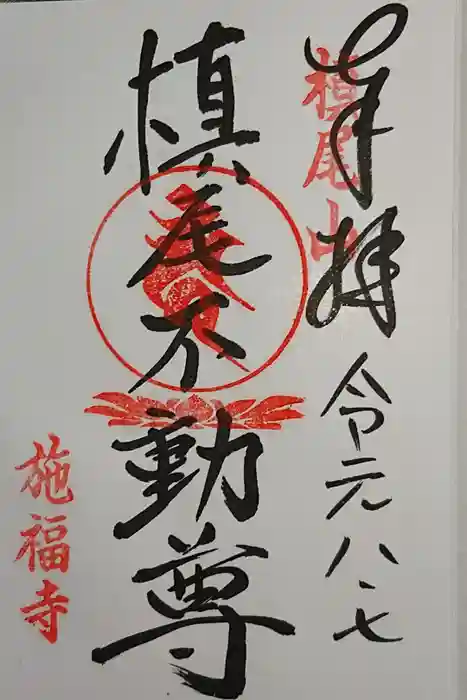 奉拝 令元八・七
槙尾山
槙尾不動尊
施福寺